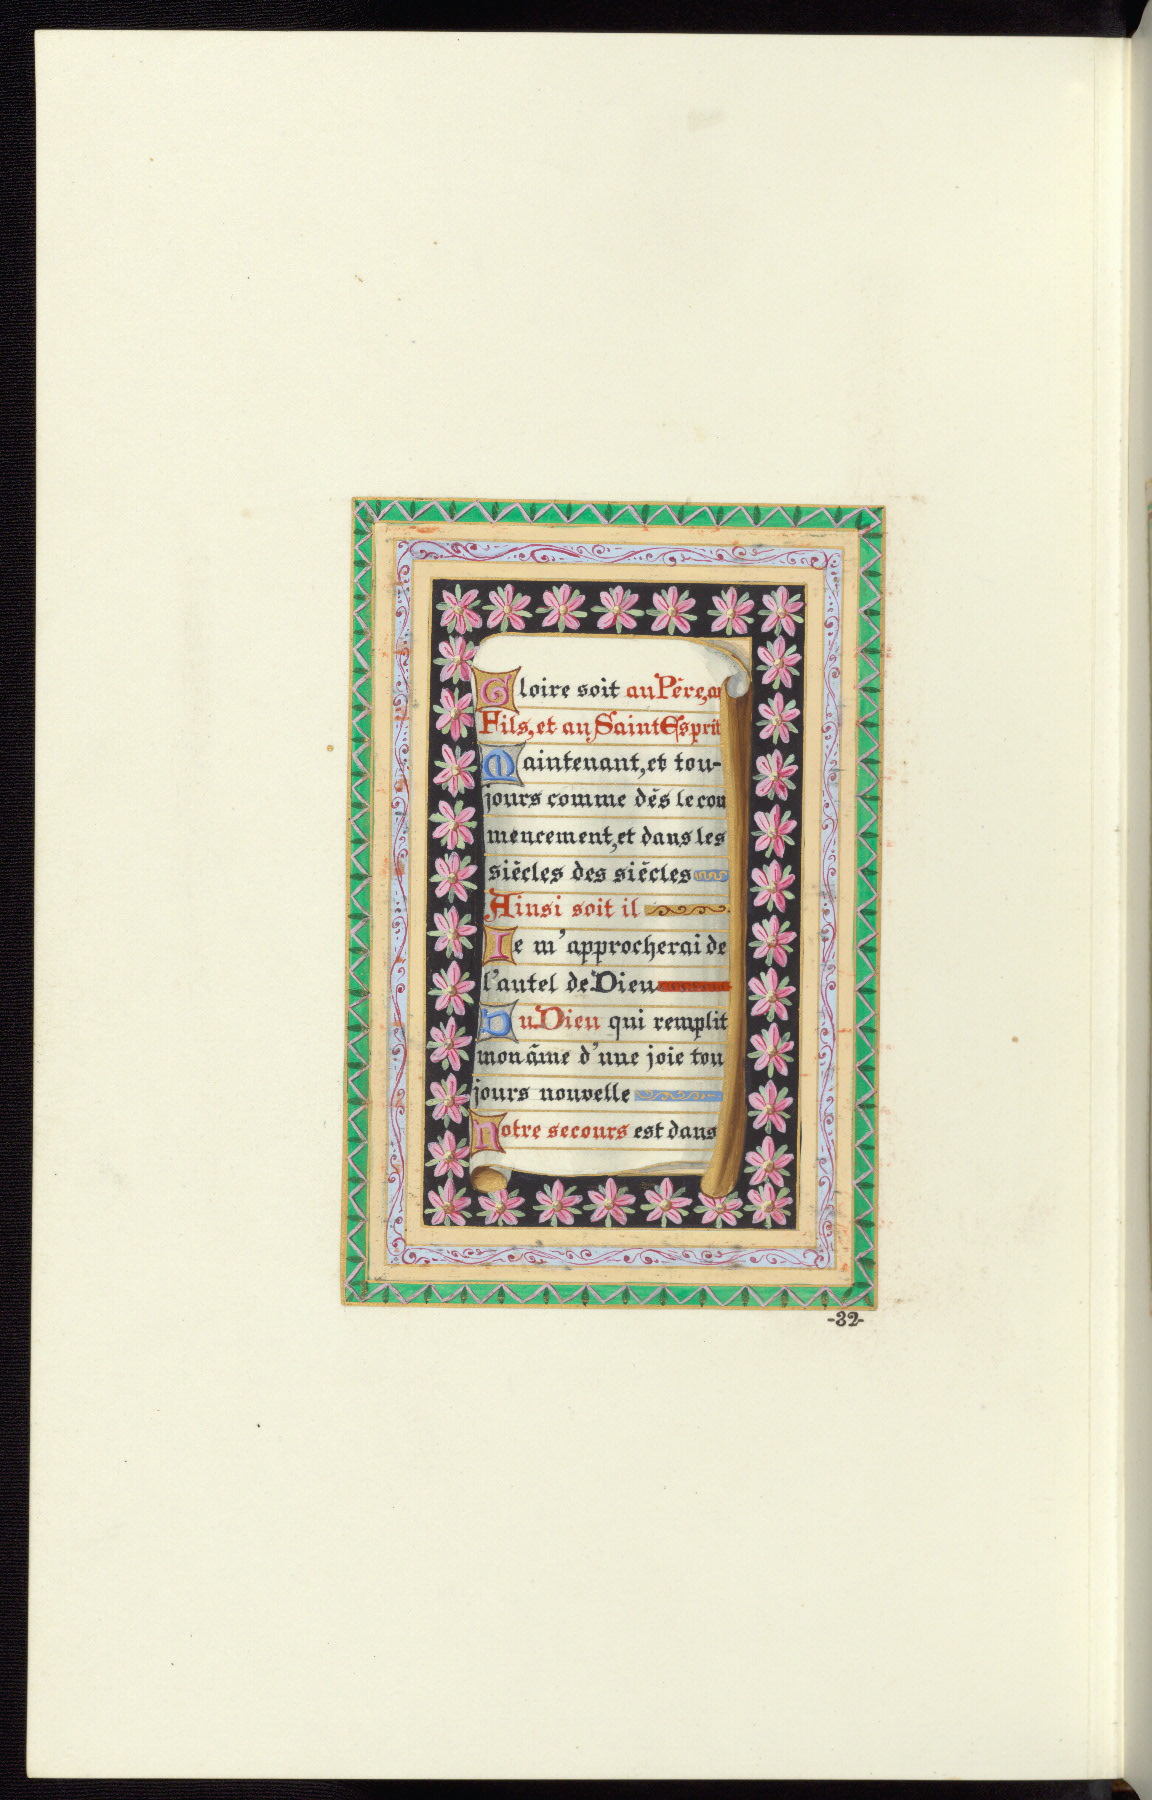 Gloire soit au Père, au
Fils, et au Saint Esprit
Maintenant, et tou-
jours comme dès le com
mencement, et dans les
siècles des siècles
Ainsi soit il
Je m'approcherai de
l'autel de Dieu
Du Dieu qui remplit
mon âme d'une joie tou
jours nouvelle
Notre secours est dans
-32-